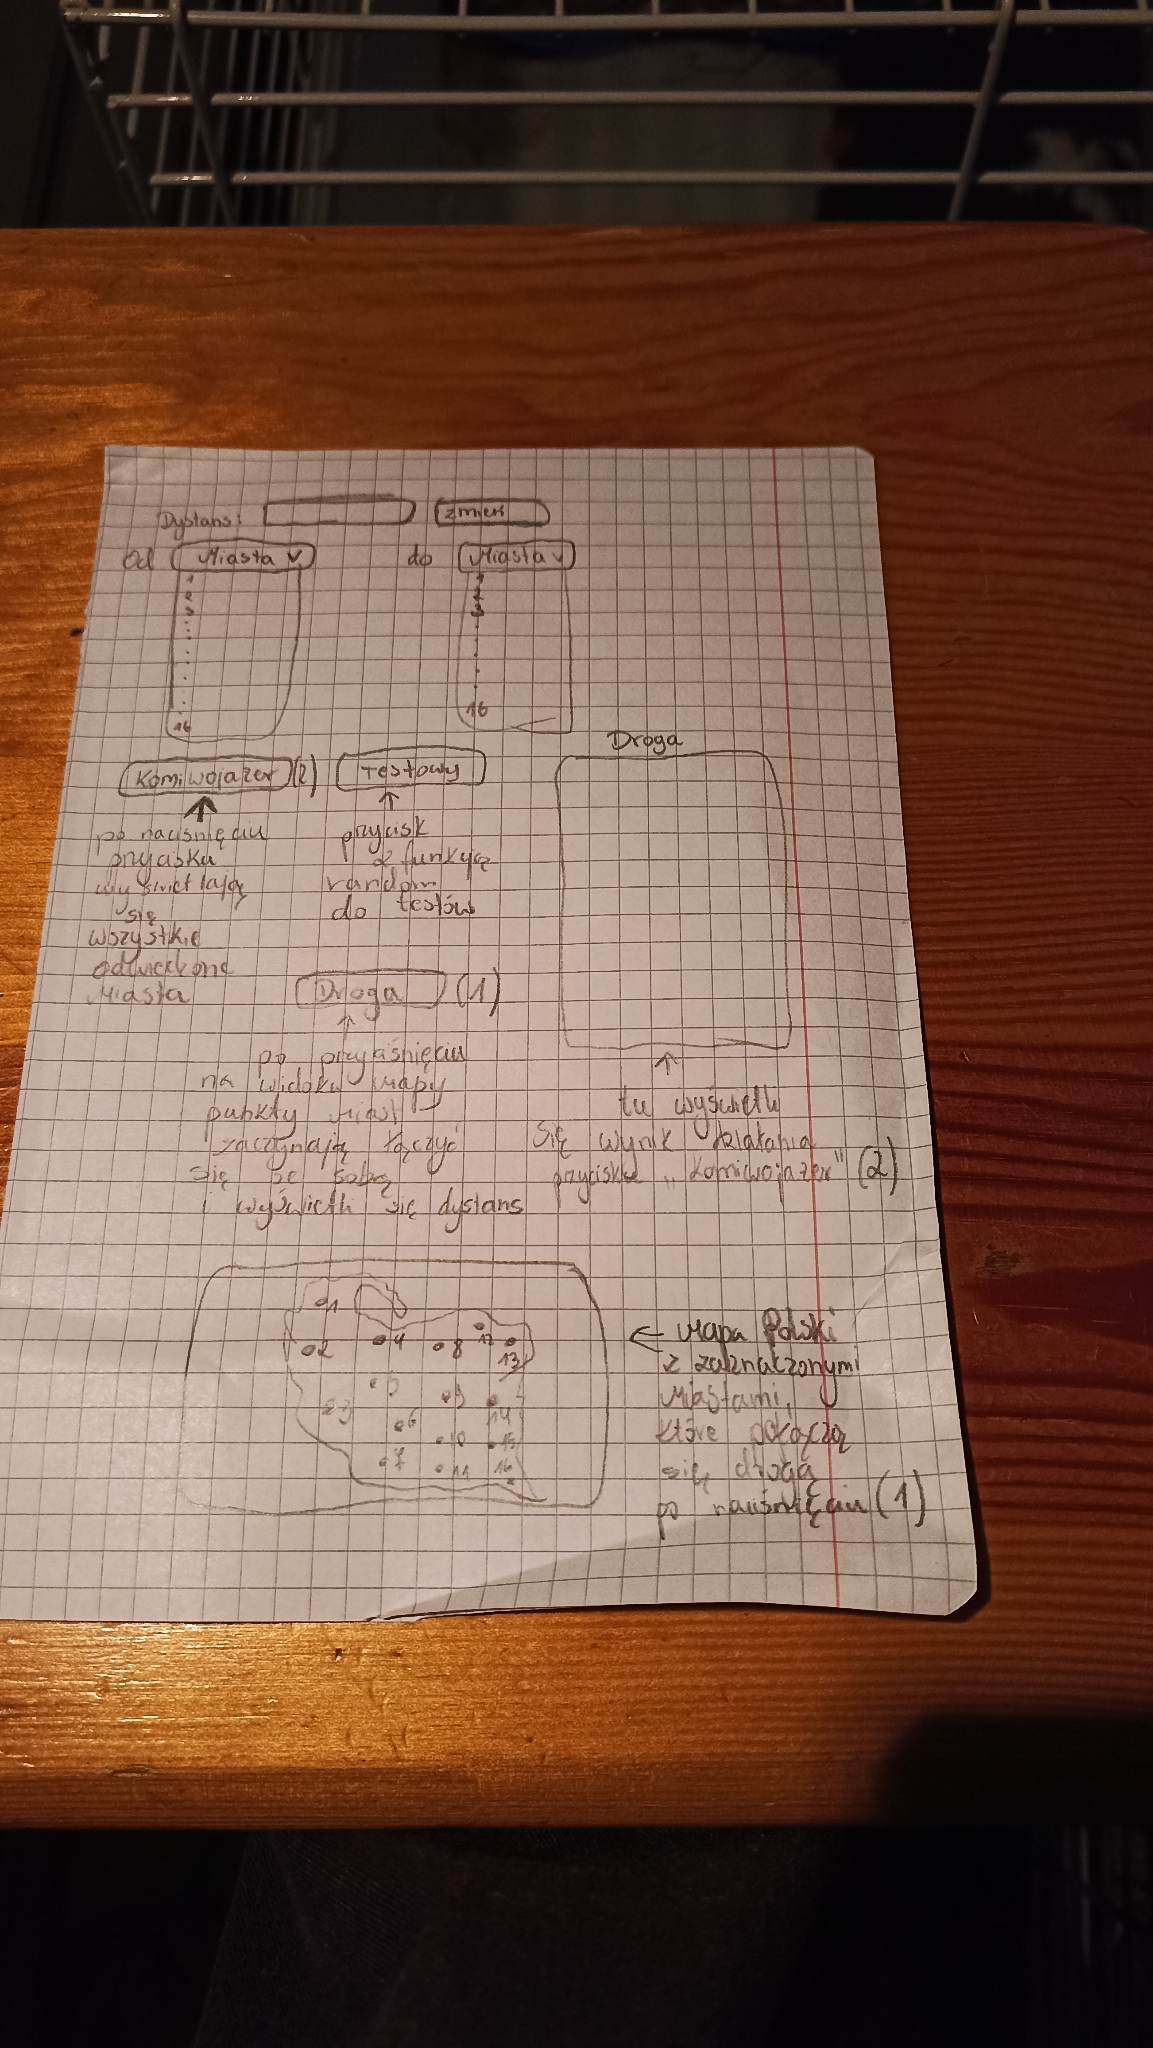 Dystans: zmień
Od Miasta v do Miasta v
1
2
3
16
1
2
3
16
Komiwojażer (2) Testowy
Droga
po naciśnięciu
przycisku
wyświetlają
się
wszystkie
odwiedzone
Miasta
przycisk
z funkcją
random
do testów
Droga (1)
po przyciśnięciu
na widoku mapy
punkty miast
zaczynają łączyć
się ze sobą
i wyświetli się dystans
tu wyświetli
się wynik działania
przycisku „Komiwojażer" (2)
1
2 4 8 12 13
3 5 9 14
6 10 15
7 11 16
← Mapa Polski
z zaznaczonymi
Miastami,
które połączą
się drogą
po naciśnięciu (1)